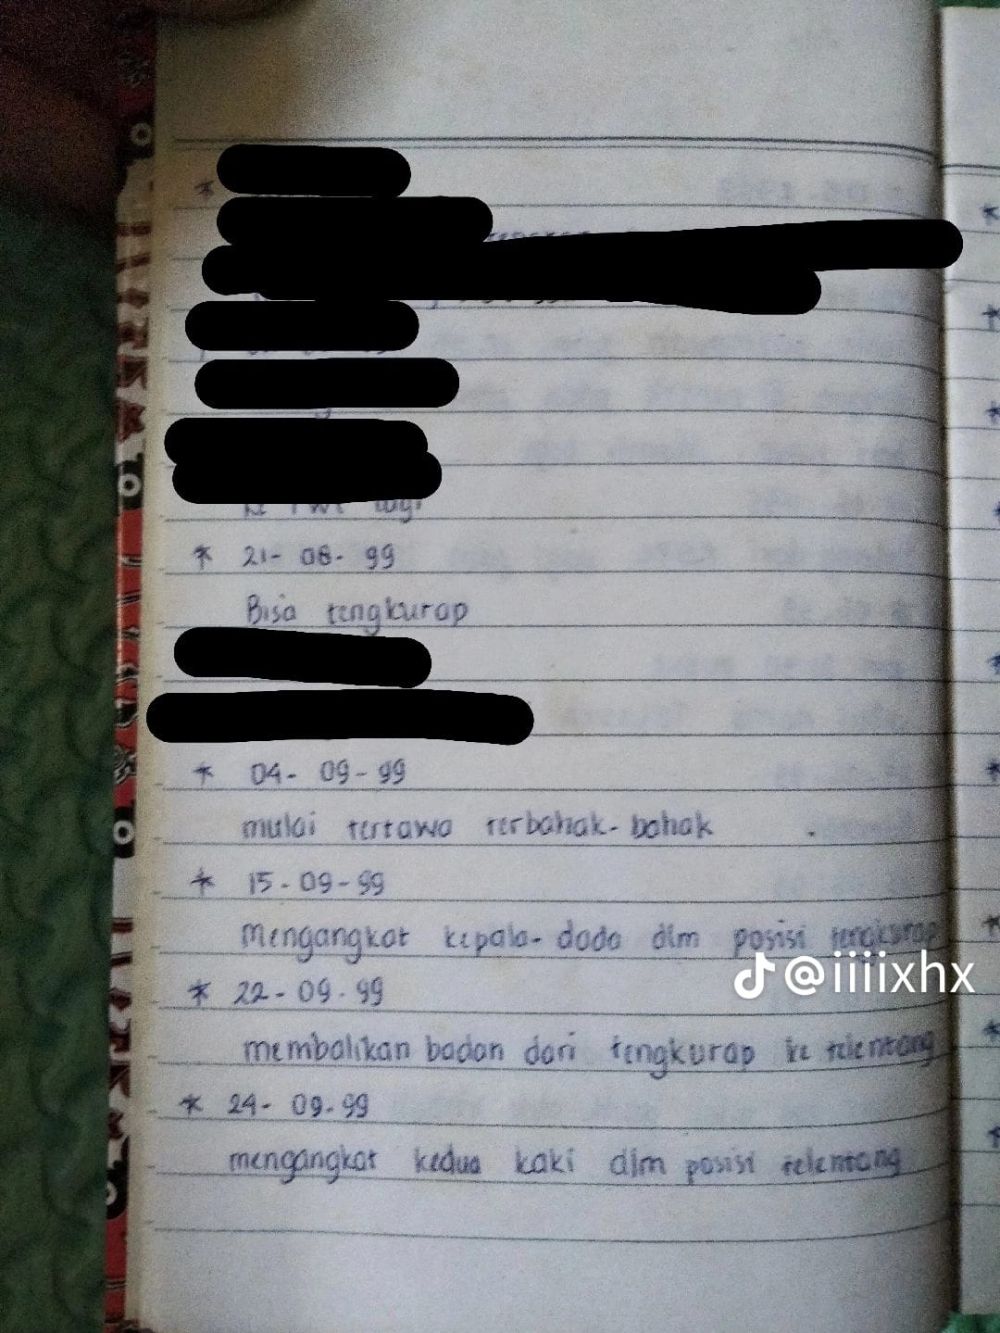 * 21-08-99
Bisa tengkurap
* 04-09-99
mulai tertawa terbahak-bahak
* 15-09-99
Mengangkat kepala-dada dlm posisi tengkurap
@iiiixhx
* 22-09-99
membalikan badan dari tengkurap ke telentang
* 24-09-99
mengangkat kedua kaki dlm posisi telentang